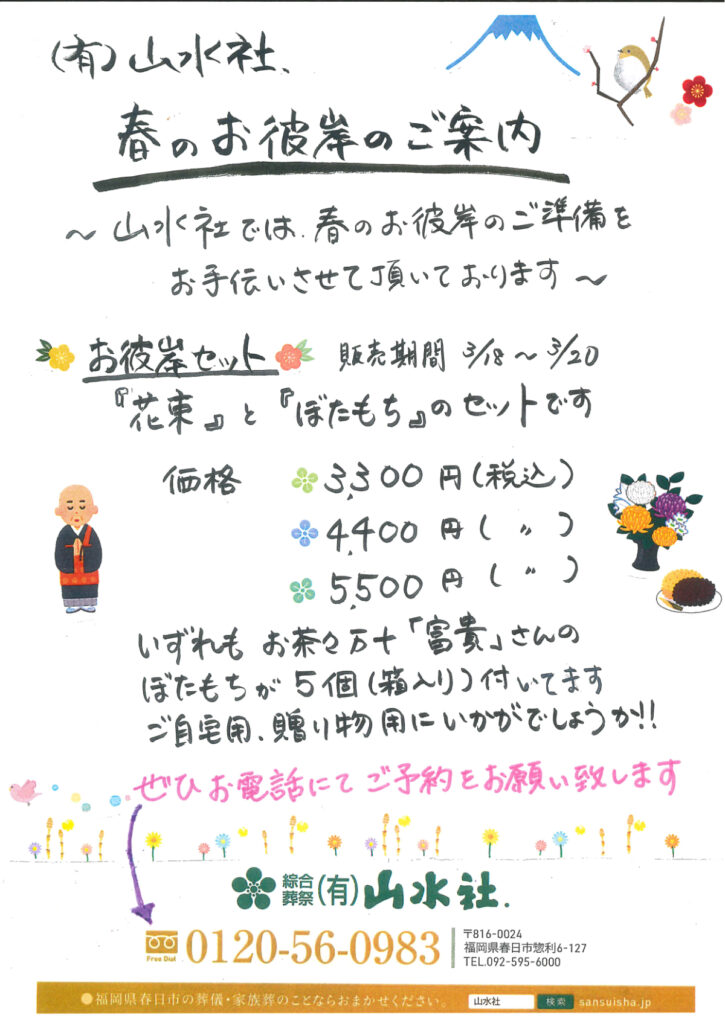 (有)山水社、
春のお彼岸のご案内
～山水社では、春のお彼岸のご準備を
お手伝いさせて頂いております～
お彼岸セット 販売期間 3/18～3/20
『花束』と『ぼたもち』のセットです
価格 3,300円(税込)
4,400円( 〃 )
5,500円( 〃 )
いずれも お茶々万十「富貴」さんの
ぼたもちが5個(箱入り)付いてます
ご自宅用、贈り物用にいかがでしょうか!!
ぜひお電話にてご予約をお願い致します
綜合葬祭(有)山水社.
Free Dial 0120-56-0983
〒816-0024
福岡県春日市惣利6-127
TEL.092-595-6000
●福岡県春日市の葬儀・家族葬のことならおまかせください。 山水社 検索 sansuisha.jp